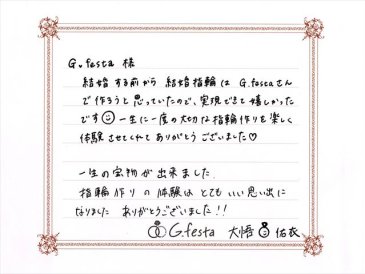 G.festa 様
結婚する前から結婚指輪は G.festaさん
で作ろうと思っていたので、実現できて嬉しかった
です☺一生に一度の大切な指輪作りを楽しく
体験させてくれてありがとうございました♡
一生の宝物が出来ました
指輪作りの体験はとてもいい思い出に
なりました ありがとうございました!!
G.festa 大悟 佑衣